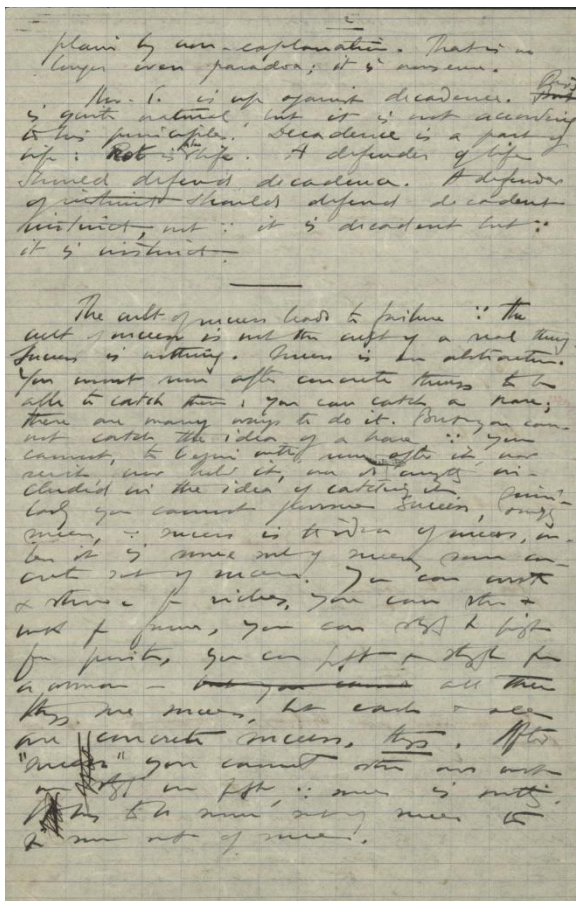 2
plain by non-explanation. That is no
longer even paradox; it is nonsense.
Mr. T. is up against decadence. This
is quite natural, but it is not according
to his principles. Decadence is a part of
life: Rot is life. A defender of life
should defend decadence. A defender
of instinct should defend decadent
instinct, not ∵ it is decadent but ∵
it is instinct.
The cult of success leads to failure ∵ the
cult of success is not the cult of a real thing.
Success is nothing. Success is an abstraction.
You must run after concrete things to be
able to catch them; you can catch a hare;
there are many ways to do it. But you can-
not catch the idea of a hare ∵ you
cannot, to begin with, run after it, nor
nor hold it, nor anything in-
cluded in the idea of catching it. Simi-
larly you cannot success,
success, ∵ success is the idea of success,
it is some sort of success, some con-
crete sort of success. You can work
& strive for riches, you can strive &
work for fame, you can struggle & fight
for you can fight & struggle for
a woman – all these
things are success, but each & all
are concrete success, things. After
"success" you cannot strive nor work
nor struggle nor fight, ∵ success is nothing.
to be some sort of success to
sort of success.